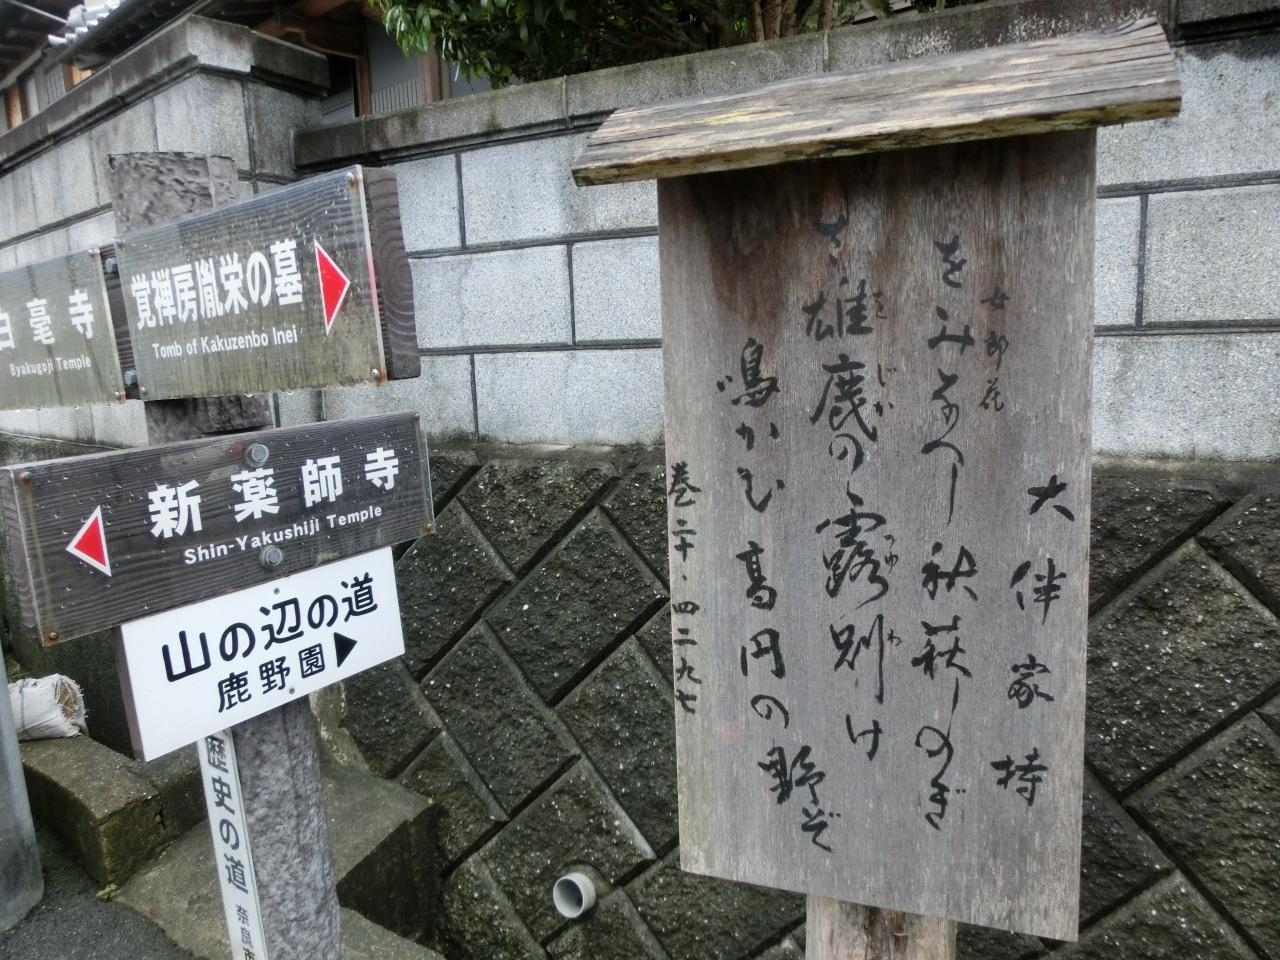 白毫寺
Byakugoji Temple
覚禅房胤栄の墓
Tomb of Kakuzenbo Inei
新薬師寺
Shin-Yakushiji Temple
山の辺の道
鹿野園
歴史の道 奈良市
大伴家持
女郎花
をみなへし秋萩しのぎ
さ雄鹿の露別け
を じか つゆ わ
鳴かむ高円の野ぞ
巻二十・四二九七